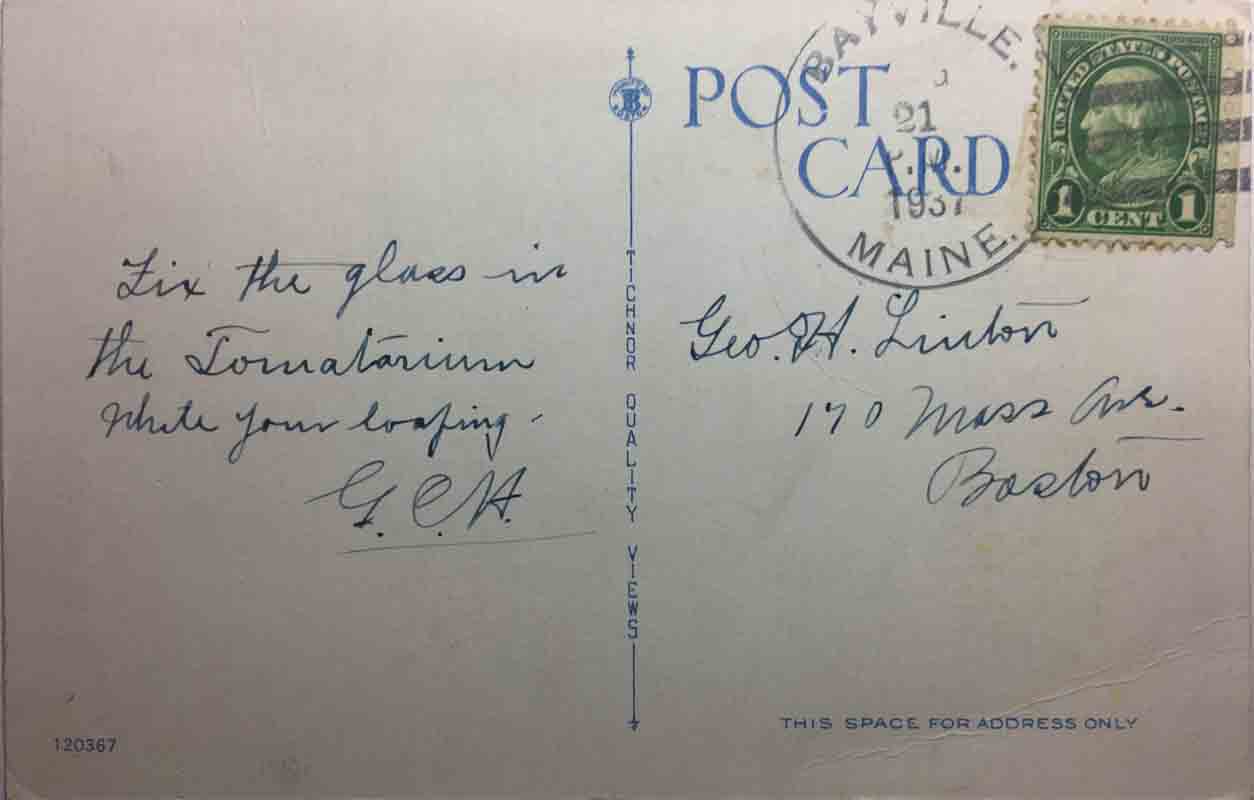 POST CARD
BAYVILLE.
21
1937
MAINE.
UNITED STATES POSTAGE
1 CENT 1
Fix the glass in
the Tomatarium
while your loafing -
G. C. H.
TICHNOR QUALITY VIEWS
Geo. H. Linton
170 Mass Ave.
Boston
THIS SPACE FOR ADDRESS ONLY
120367